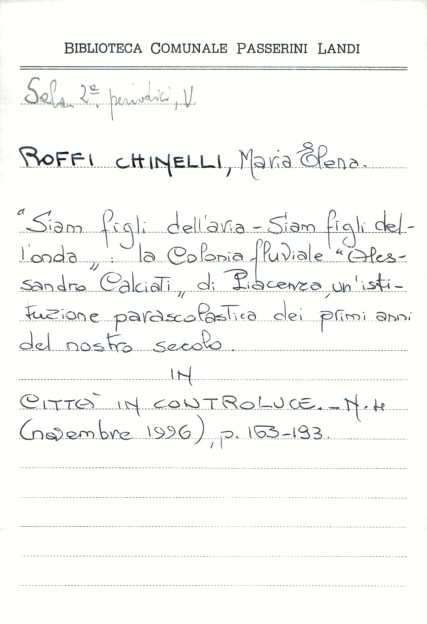 BIBLIOTECA COMUNALE PASSERINI LANDI
Sala 2ª periodici, V
ROFFI CHINELLI, Maria Elena.
"Siam figli dell'aria - Siam figli del-
l'onda„: la Colonia fluviale "Ales-
sandro Calciati„ di Piacenza, un'isti-
tuzione parascolastica dei primi anni
del nostro secolo.
IN
CITTÀ IN CONTROLUCE. - N. 4
(novembre 1996), p. 163-193.